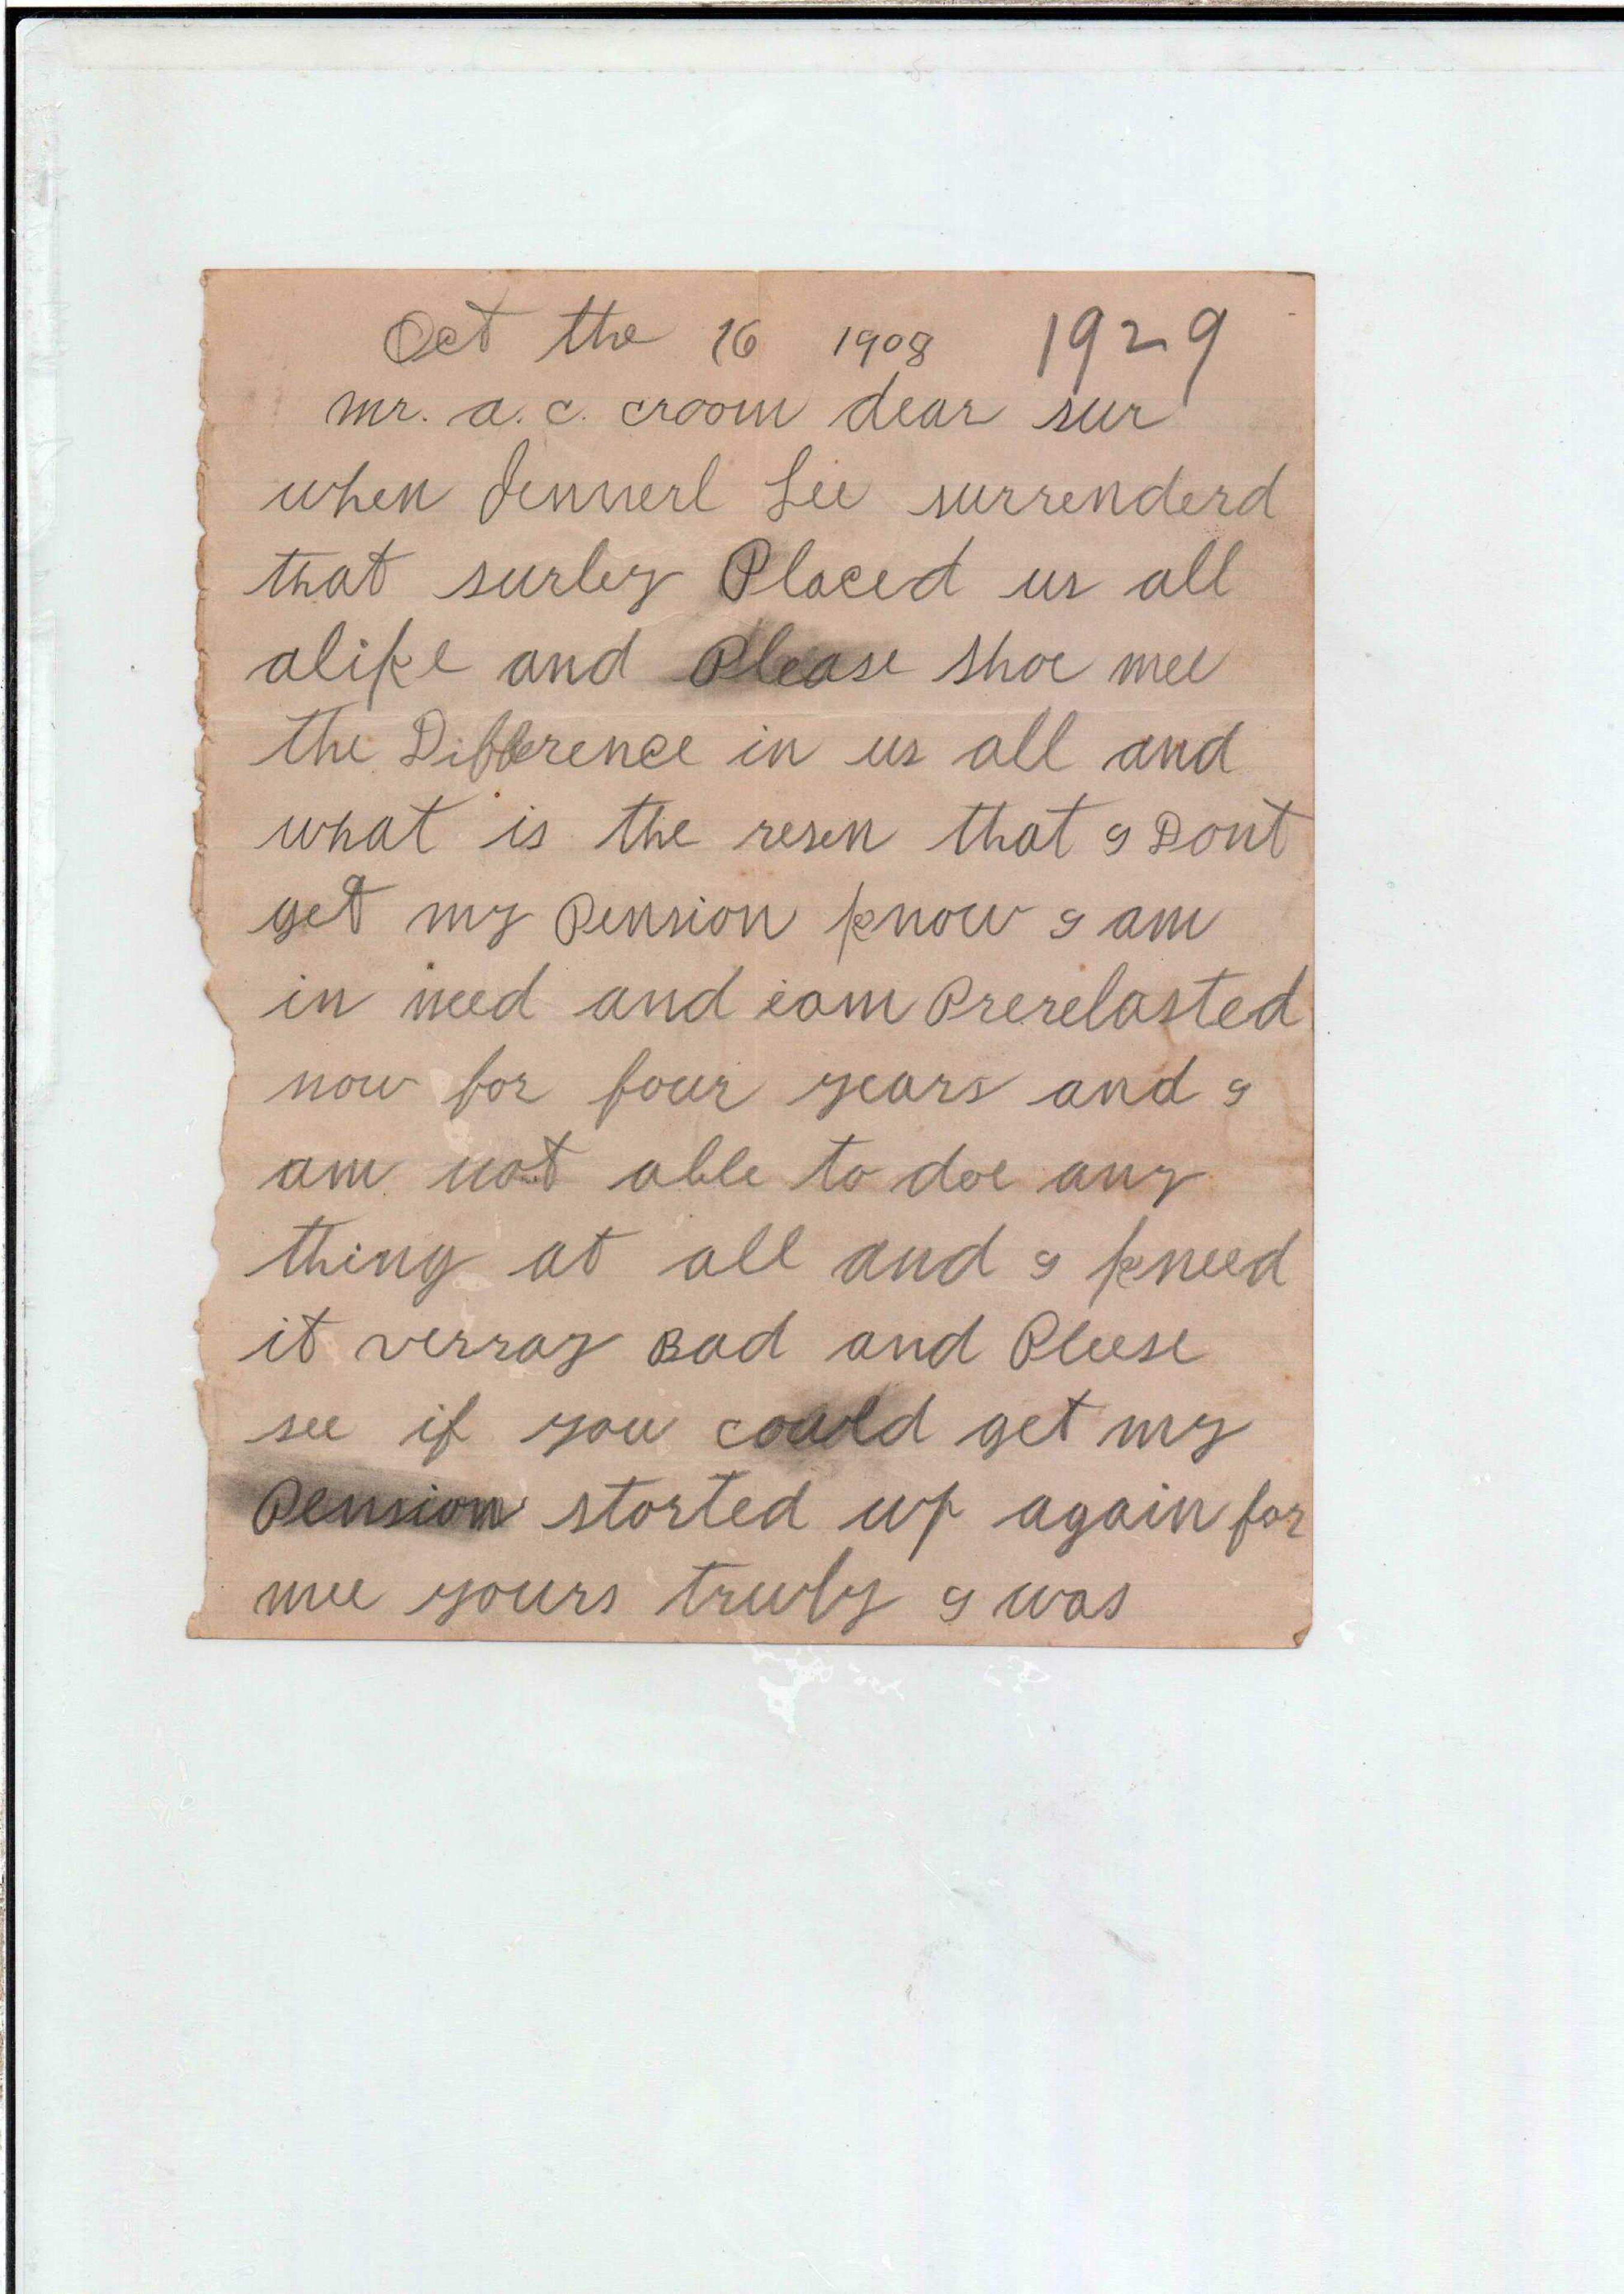 Oct the 16 1908 1929
mr. a. c. croom dear sur
when Jennerl Lee surrenderd
that surley Placed us all
alike and Please shoe mee
the Difference in us all and
what is the resen that I Dont
get my Pension know I am
in need and iam Prerelasted
now for four years and I
am not able to doe any
thing at all and I kneed
it verray Bad and Pleese
see if you could get my
Pension storted up again for
mee yours truly I was